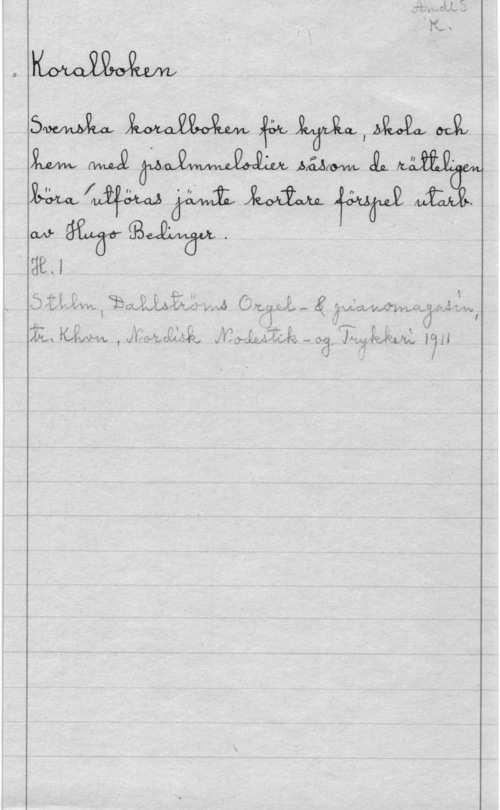 AndlS
K.
Koralboken
Svenska koralboken för kyrka, skola och
hem med psalmmelodier såsom de rätteligen
böra utföras jämte kortare förspel utarb.
av Hugo Bedinger.
H. 1
Sthlm, Dahlströms Orgel- & pianomagasin,
tr. Khvn, Nordisk Nodestik- og Trykkeri 1911